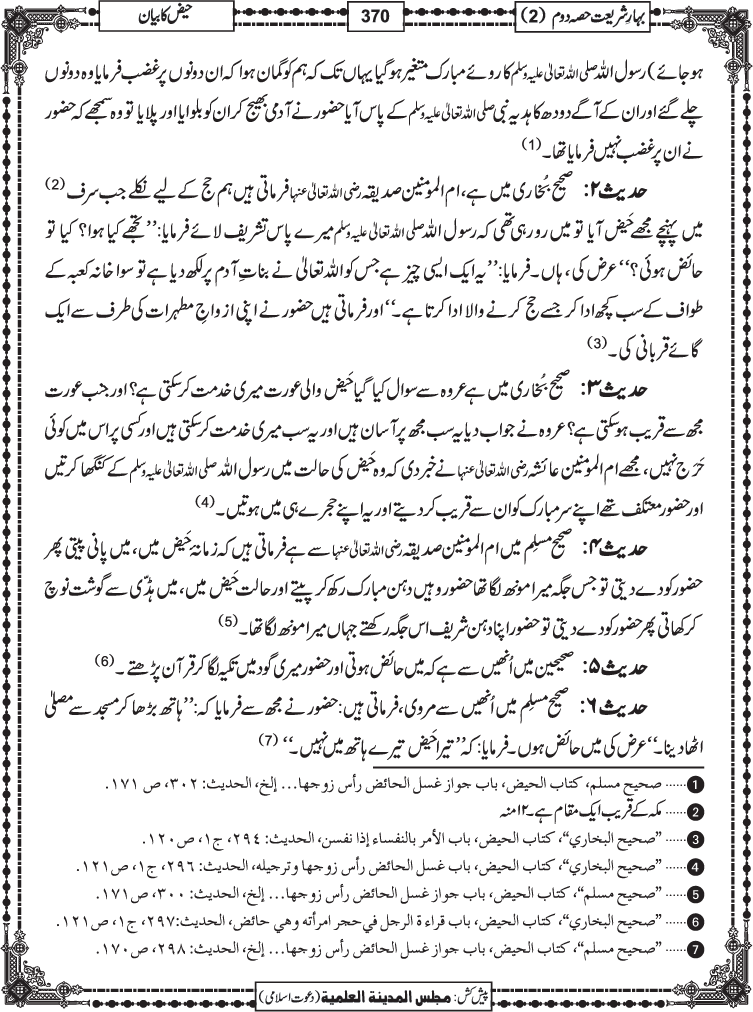 بہارِ شریعت حصہ دوم (2)
370
حیض کا بیان
ہو جائے) رسول اللہ صلی اللہ تعالیٰ علیہ وسلم کا روئے مبارک متغیر ہو گیا یہاں تک کہ ہم کو گمان ہوا کہ ان دونوں پر غضب فرمایا وہ دونوں
چلے گئے اور ان کے آگے دودھ کا ہدیہ نبی صلی اللہ تعالیٰ علیہ وسلم کے پاس آیا حضور نے آدمی بھیج کر ان کو بلوایا اور پلایا تو وہ سمجھے کہ حضور
نے ان پر غضب نہیں فرمایا تھا۔ (1)
حدیث ۲: صحیح بُخاری میں ہے، ام المومنین صدیقہ رضی اللہ تعالیٰ عنہا فرماتی ہیں ہم حج کے لیے نکلے جب سرف (2)
میں پہنچے مجھے حَیض آیا تو میں رو رہی تھی کہ رسول اللہ صلی اللہ تعالیٰ علیہ وسلم میرے پاس تشریف لائے فرمایا: ’’تجھے کیا ہوا؟ کیا تو
حائض ہوئی؟‘‘ عرض کی، ہاں۔ فرمایا: ’’یہ ایک ایسی چیز ہے جس کو اللہ تعالیٰ نے بناتِ آدم پر لکھ دیا ہے تو سوا خانہ کعبہ کے
طواف کے سب کچھ ادا کر جسے حج کرنے والا ادا کرتا ہے۔‘‘ اور فرماتی ہیں حضور نے اپنی ازواجِ مطہرات کی طرف سے ایک
گائے قربانی کی۔ (3)
حدیث ۳: صحیح بُخاری میں ہے عروہ سے سوال کیا گیا حَیض والی عورت میری خدمت کر سکتی ہے؟ اور جنب عورت
مجھ سے قریب ہو سکتی ہے؟ عروہ نے جواب دیا یہ سب مجھ پر آسان ہیں اور یہ سب میری خدمت کر سکتی ہیں اور کسی پر اس میں کوئی
حَرَج نہیں، مجھے ام المومنین عائشہ رضی اللہ تعالیٰ عنہا نے خبر دی کہ وہ حَیض کی حالت میں رسول اللہ صلی اللہ تعالیٰ علیہ وسلم کے کنگھا کرتیں
اور حضور معتکف تھے اپنے سر مبارک کو ان سے قریب کر دیتے اور یہ اپنے حجرے ہی میں ہوتیں۔ (4)
حدیث ۴: صحیح مسلم میں ام المومنین صدیقہ رضی اللہ تعالیٰ عنہا سے ہے فرماتی ہیں کہ زمانۂ حَیض میں، میں پانی پیتی پھر
حضور کو دے دیتی تو جس جگہ میرا مونھ لگا تھا حضور وہیں دہن مبارک رکھ کر پیتے اور حالت حَیض میں، میں ہڈی سے گوشت نوچ
کر کھاتی پھر حضور کو دے دیتی تو حضور اپنا دہن شریف اس جگہ رکھتے جہاں میرا مونھ لگا تھا۔ (5)
حدیث ۵: صحیحین میں اُنھیں سے ہے کہ میں حائض ہوتی اور حضور میری گود میں تکیہ لگا کر قرآن پڑھتے۔ (6)
حدیث ۶: صحیح مسلم میں اُنھیں سے مروی، فرماتی ہیں: حضور نے مجھ سے فرمایا کہ: ’’ہاتھ بڑھا کر مسجد سے مصلیٰ
اٹھا دینا۔‘‘ عرض کی میں حائض ہوں۔ فرمایا: کہ ’’تیرا حَیض تیرے ہاتھ میں نہیں۔‘‘ (7)
1 ...... صحیح مسلم، کتاب الحیض، باب جواز غسل الحائض رأس زوجها... إلخ، الحدیث: ۳۰۲، ص ۱۷۱.
2 ...... مکہ کے قریب ایک مقام ہے۔ ۱۲ منہ
3 ...... "صحیح البخاري"، کتاب الحیض، باب الأمر بالنفساء إذا نفسن، الحدیث: ۲۹٤، ج۱، ص۱۲۰.
4 ...... "صحیح البخاري"، کتاب الحیض، باب غسل الحائض رأس زوجها وترجیله، الحدیث: ۲۹٦، ج۱، ص۱۲۱.
5 ...... "صحیح مسلم"، کتاب الحیض، باب جواز غسل الحائض رأس زوجها... إلخ، الحدیث: ۳۰۰، ص۱۷۱.
6 ...... "صحیح البخاري"، کتاب الحیض، باب قراءة الرجل في حجر امرأته وهي حائض، الحدیث: ۲۹۷، ج۱، ص۱۲۱.
7 ...... "صحیح مسلم"، کتاب الحیض، باب جواز غسل الحائض رأس زوجها... إلخ، الحدیث: ۲۹۸، ص۱۷۰.
پیش کش: مجلس المدینة العلمیة (دعوت اسلامی)